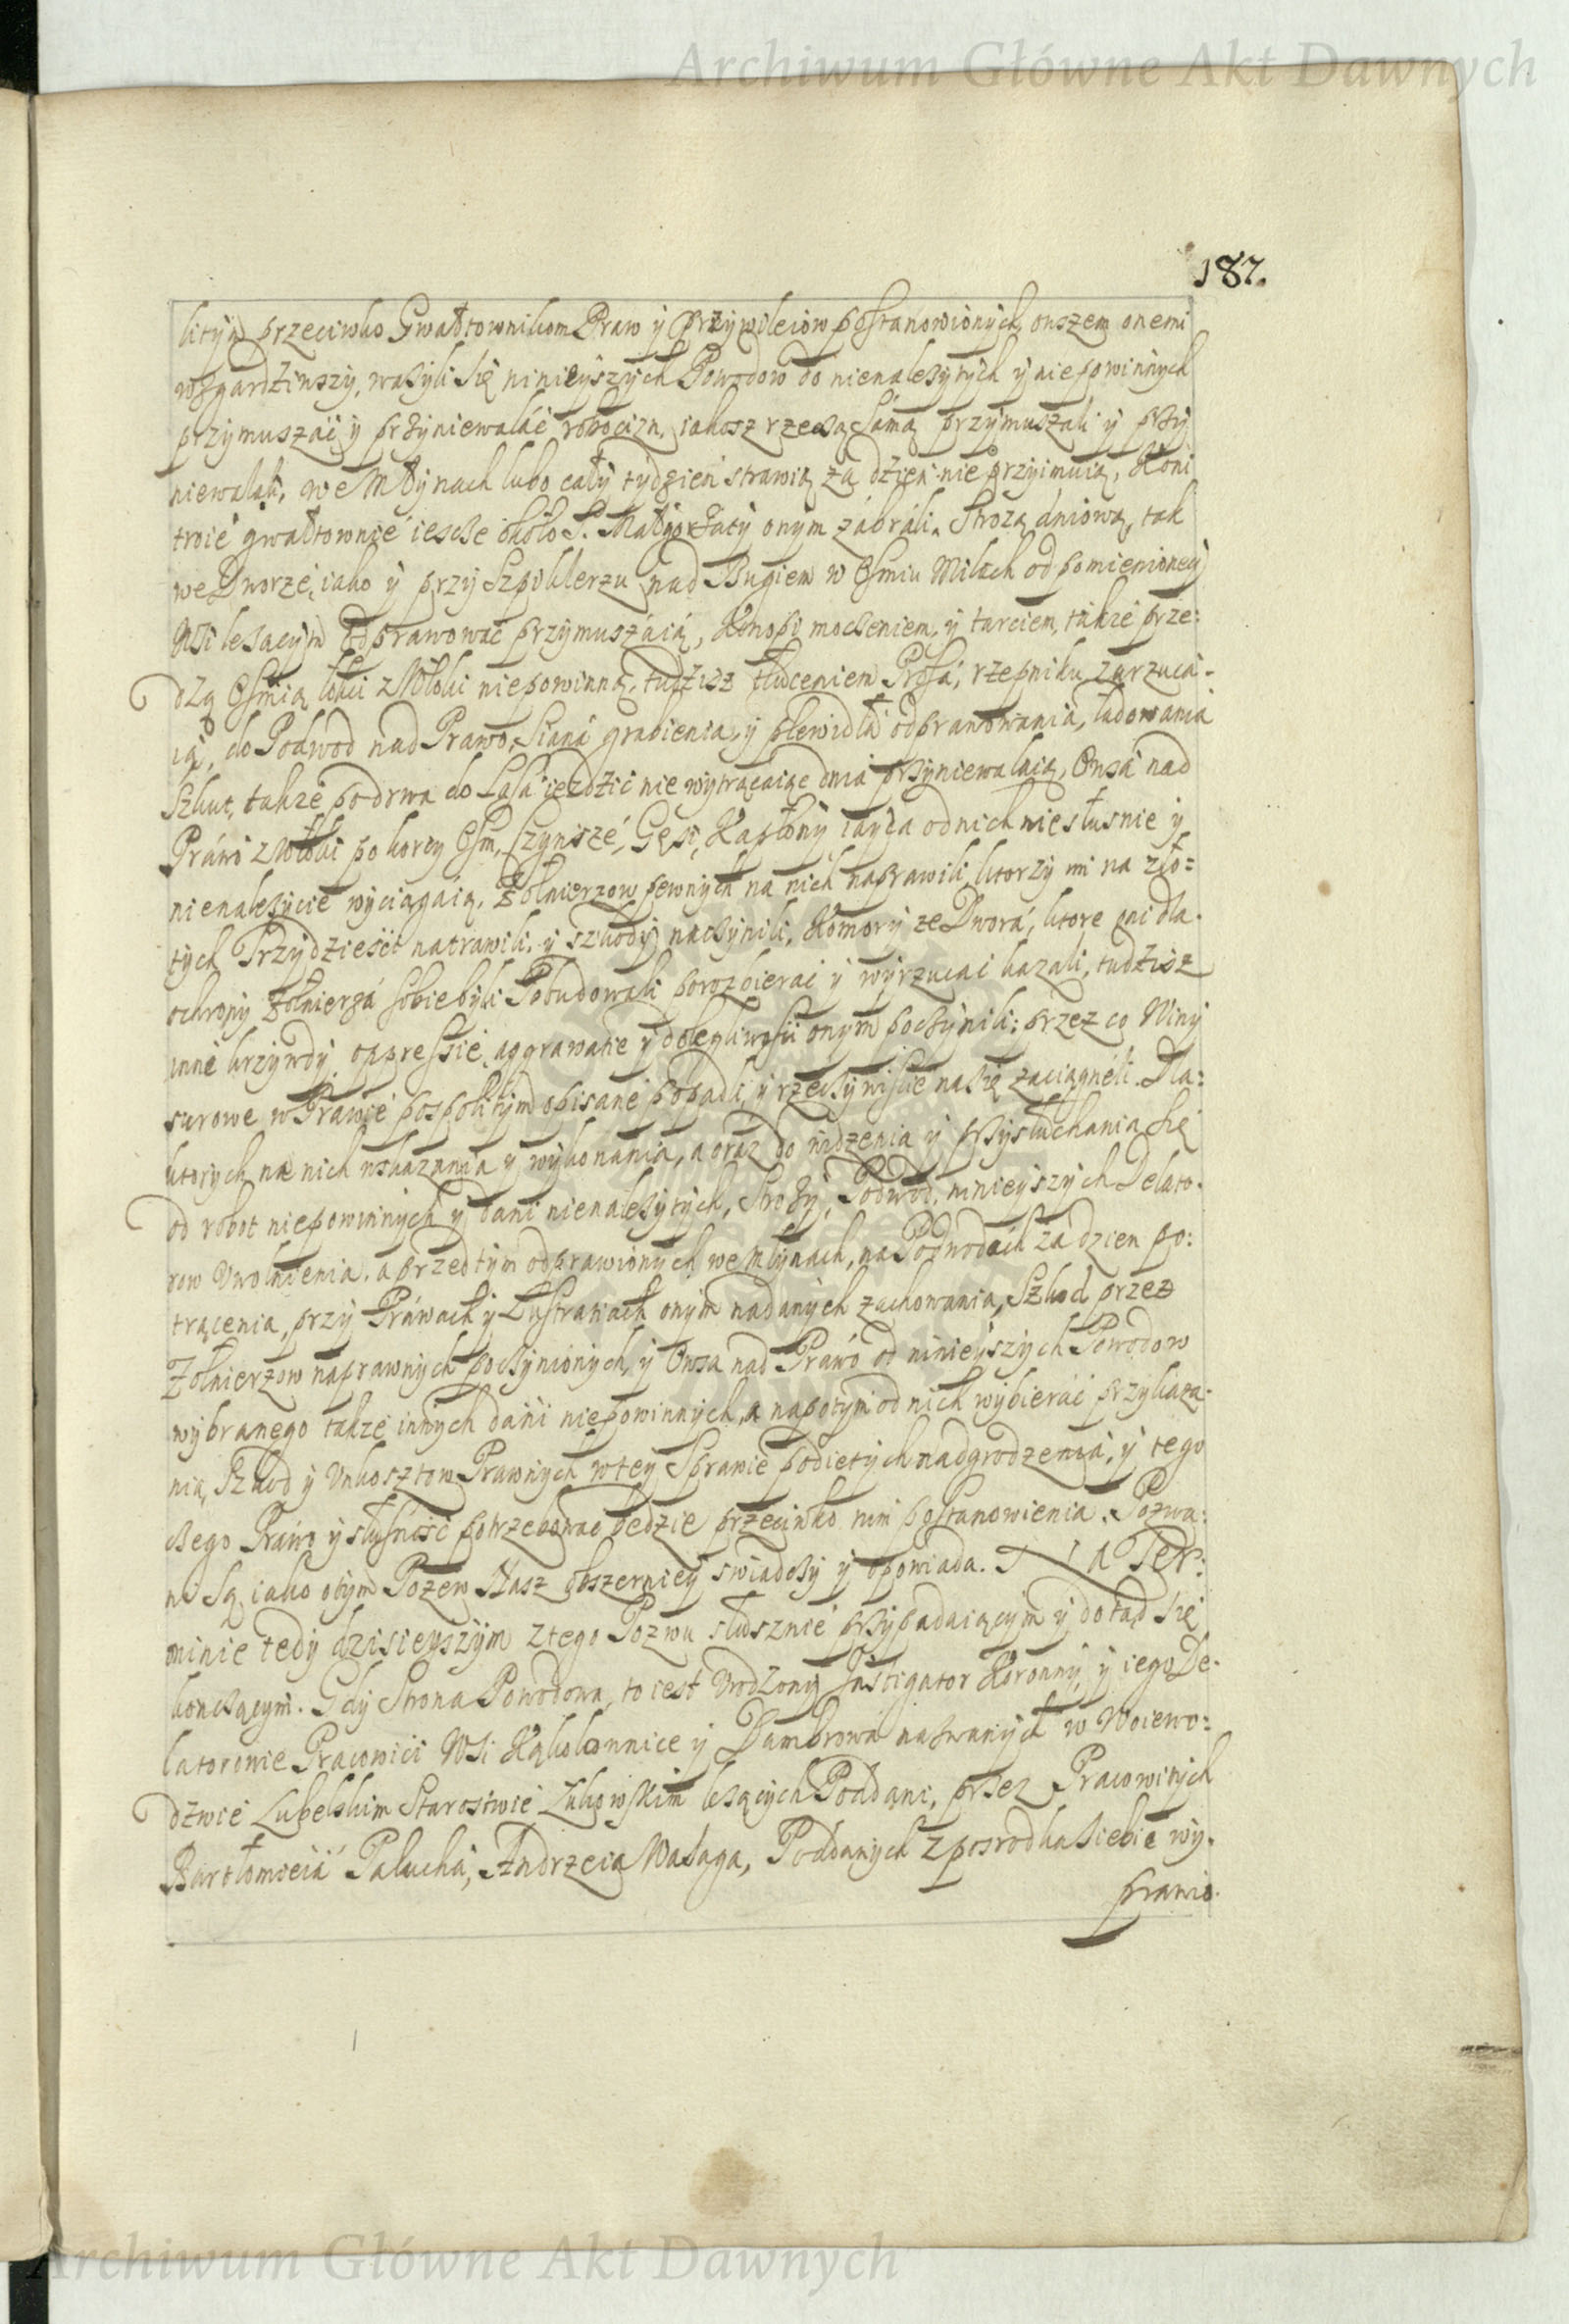 Archiwum Główne Akt Dawnych
187.
litym przeciwko Gwałtownikom Praw y Przywileiow postanowionych, owszem onemi
wzgardziwszy, ważyli się ninieyszych Powodow do nienależytych y niepowinnych
przymuszać y przyniewalać robocizn, iakosz rzeczą samą przymuszali y przy
niewalali, we Młynach lubo cały tydzień strawią za dzień nie przyimuią, Koni
troie gwałtownie iescze około S. Małgorzaty onym zabrali. Strożą dniową, tak
we Dworze, iako y przy Szpiklerzu nad Bugiem w Ośmiu Milach od pomienioney
Wsi leżącym odprawować przymuszaią, Konopi moczeniem, y tarciem, także prze:
dzą Ośmią łokci z Włoki niepowinną, tudzisz tłuczeniem Prosa, rzepniku zarzuca-
ią, do Podwod nad Prawo, Siana grabienia, y plewidła odprawowania, ładowania
Szkut, także po drwa do Lasa ieździć nie wytrącaiąc dnia przyniewalaią, Owsa nad
Prawo z Włoki po korcy Ośm, Czynsze, Gęsi, Kapłony, iayca od nich niesłusnie y
nienależycie wyciągaią, Żołnierzow pewnych na nich naprawili, ktorzy im na zło=
tych Trzydzieści natrawili, y szkody naczynili, Komory ze Dwora, ktore oni dla
ochrony Żołnierza sobie byli Pobudowali porozbierać y wyrzucać kazali, tudzisz
inne krzywdy, oppressie, aggrawatie y dolegliwości onym poczynili; przez co Winy
surowe w Prawie pospolitym opisane popadli, y rzeczywiście na się zaciągneli. Dla:
ktorych na nich wskazania y wykonania, a oraz do widzenia y przysłuchania się
od robot niepowinnych y dani nienależytych, Stroży, Podwod, ninieyszych Delato-
row Uwolnienia, a przedtym odprawionych we Młynach, na Podwodach za dzien po:
trącenia, przy Prawach y Lustratiach onym nadanych zachowania, Szkod przez
Żołnierzow naprawnych poczynionych, y Owsa nad Prawo od ninieyszych Powodow
wybranego także innych dani niepowinnych, a napotym od nich wybierać przykaza-
nia, Szkod y Unkosztow Prawnych w tey Sprawie podiętych nadgrodzenia, y tego
czego Prawo y słusność potrzebować bedzie przeciwko nim postanowienia. Pozwa:
ni są, iako otym Pozew Nasz obszerniey swiadczy y opowiada. Na Ter:
minie tedy dzisieyszym z tego Pozwu słusznie przypadaiącym y dotąd się
konczącym. Gdy Strona Powodowa, to iest Urodzony Instigator Koronny, y iego De-
latorowie Pracowici Wsi Kąkolownice y Dambrowa nazwanych w Woiewo:
dztwie Lubelskim Starostwie Łukowskim leżących Poddani, przez Pracowitych
Bartłomieia Palucha, Andrzeia Wasaga, Poddanych z posrodka siebie wy-
prawio-
Archiwum Główne Akt Dawnych